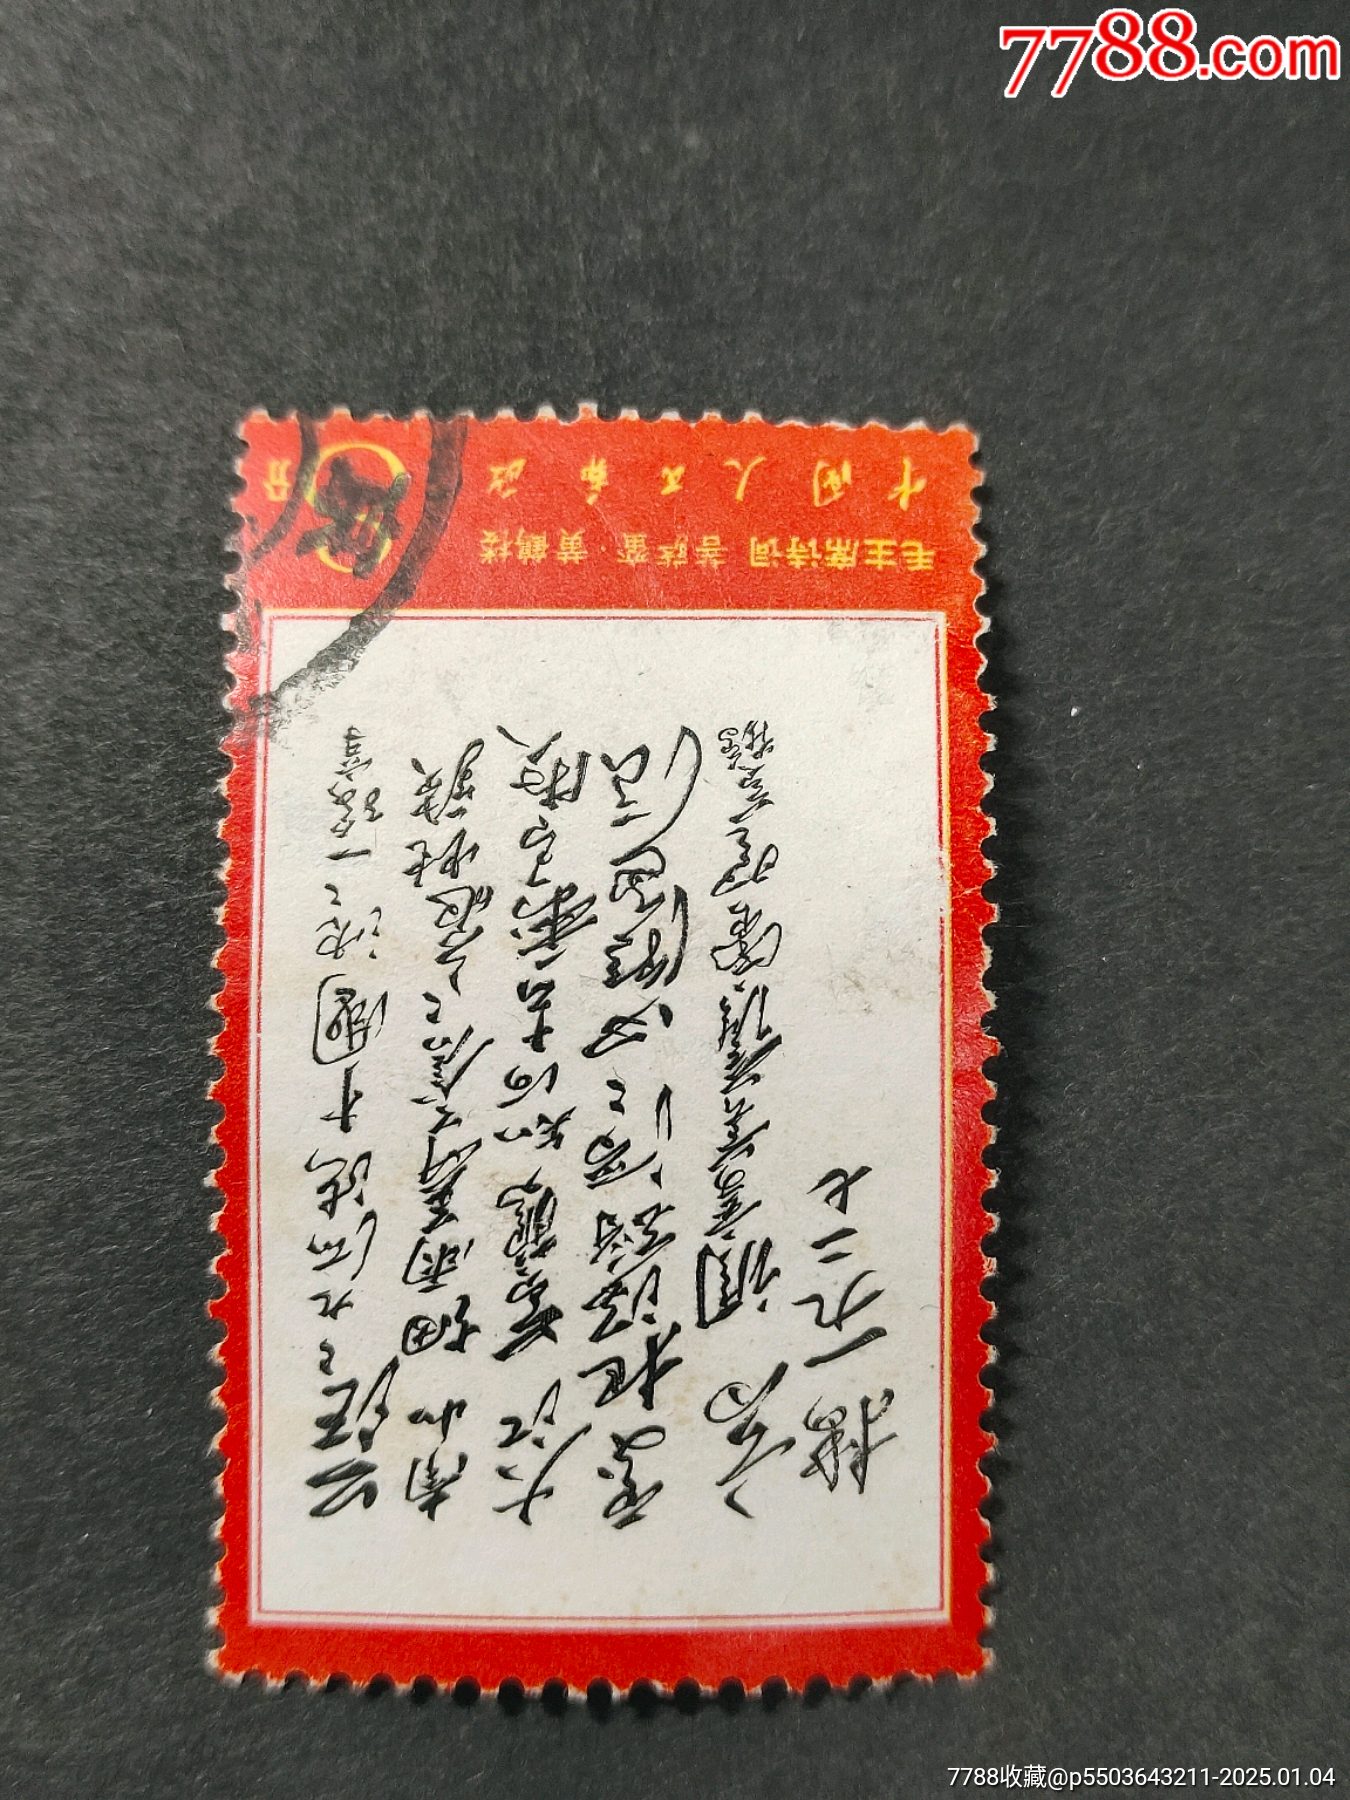 7788.com
中国人民邮政
8分
毛主席诗词 菩萨蛮·黄鹤楼
茫茫九派流中国沉沉一线穿
南北烟雨莽苍苍龟蛇锁
大江黄鹤知何去剩有游人
处把酒酹滔滔心潮逐浪高
一九二七
7788收藏@p5503643211-2025.01.04